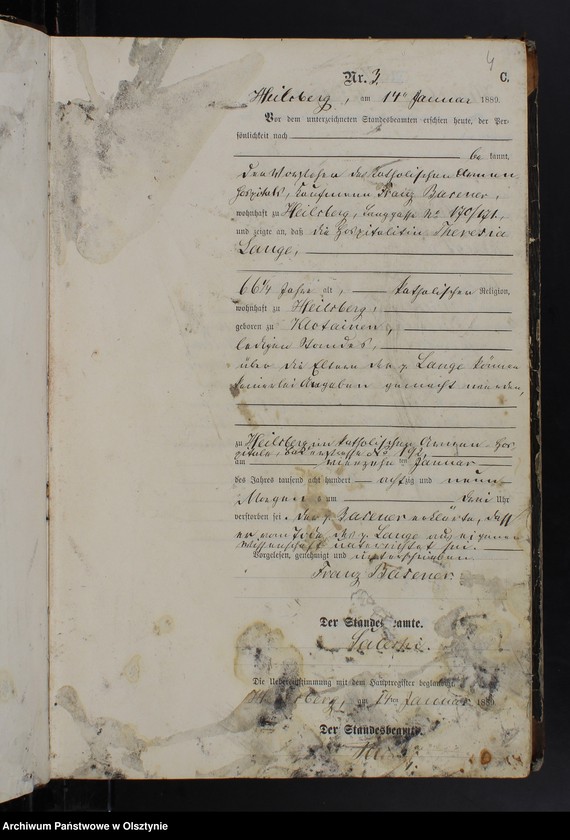 4
Nr. 3. C.
Heilsberg, am 14ten Januar 1889.
Vor dem unterzeichneten Standesbeamten erschien heute, der Per-
sönlichkeit nach
be kannt,
der Vorsteher des katholischen Armen
Hospitals, Kaufmann Franz Basener,
wohnhaft zu Heilsberg, Langgasse No 170/171,
und zeigte an, daß die Hospitalitin Theresia
Lange,
66¼ Jahre alt, katholischer Religion,
wohnhaft zu Heilsberg,
geboren zu Klotainen,
ledigen Standes,
über die Eltern der p. Lange können
keinerlei Angaben gemacht werden,
zu Heilsberg im katholischen Armen-Hos-
pitale, No 192,
am vierzehn ten Januar
des Jahres tausend acht hundert achtzig und neun
Morgens um drei Uhr
verstorben sei. Der p. Basener erklärte, daß
er vom Tode der p. Lange aus eigener
Wissenschaft unterrichtet sei.
Vorgelesen, genehmigt und unterschrieben
Franz Basener.
Der Standesbeamte.
Die Uebereinstimmung mit dem Hauptregister beglaubigt
Heilsberg, am 14ten Januar 1889.
Der Standesbeamte.
Archiwum Państwowe w Olsztynie